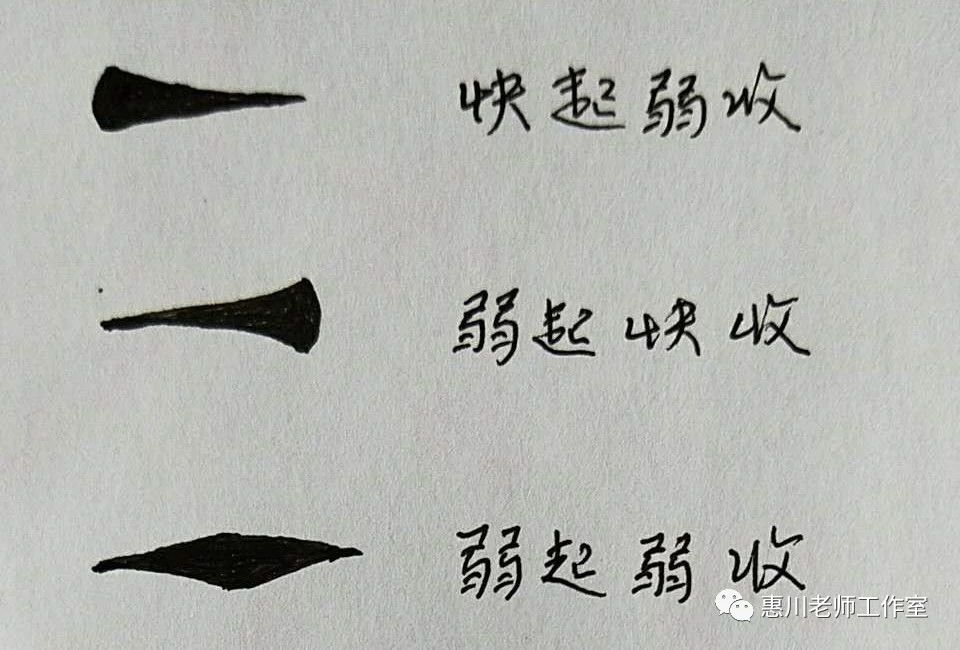 快起弱收
弱起快收
弱起弱收
惠川老师工作室